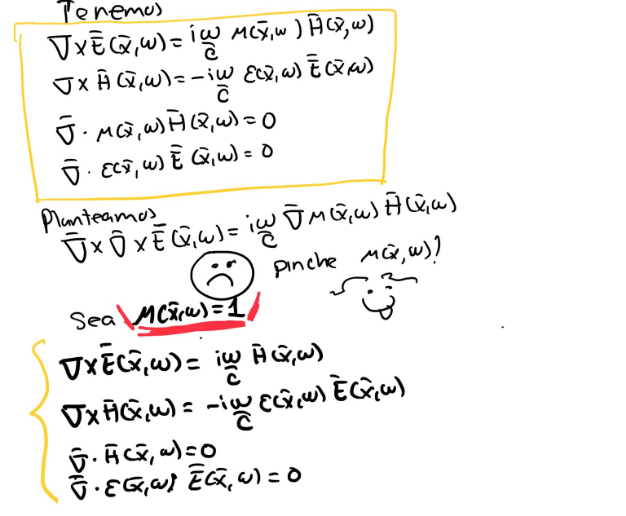 Tenemos
∇×Ē(x̄,ω)= iω/c μ(x̄,ω) H̄(x̄,ω)
∇× H̄(x̄,ω)= -iω/c ε(x̄,ω) Ē(x̄,ω)
∇̄ · μ(x̄,ω) H̄(x̄,ω) = 0
∇̄ · ε(x̄,ω) Ē (x̄,ω) = 0
Planteamos
∇̄ × ∇̄ × Ē(x̄,ω) = iω/c ∇̄ μ(x̄,ω) H̄(x̄,ω)
pinche μ(x̄,ω)?
Sea μ(x̄,ω)=1
∇×Ē(x̄,ω) = iω/c H̄(x̄,ω)
∇×H̄(x̄,ω) = -iω/c ε(x̄,ω) Ē(x̄,ω)
∇̄ · H̄(x̄,ω)=0
∇̄ · ε(x̄,ω) Ē(x̄,ω) = 0